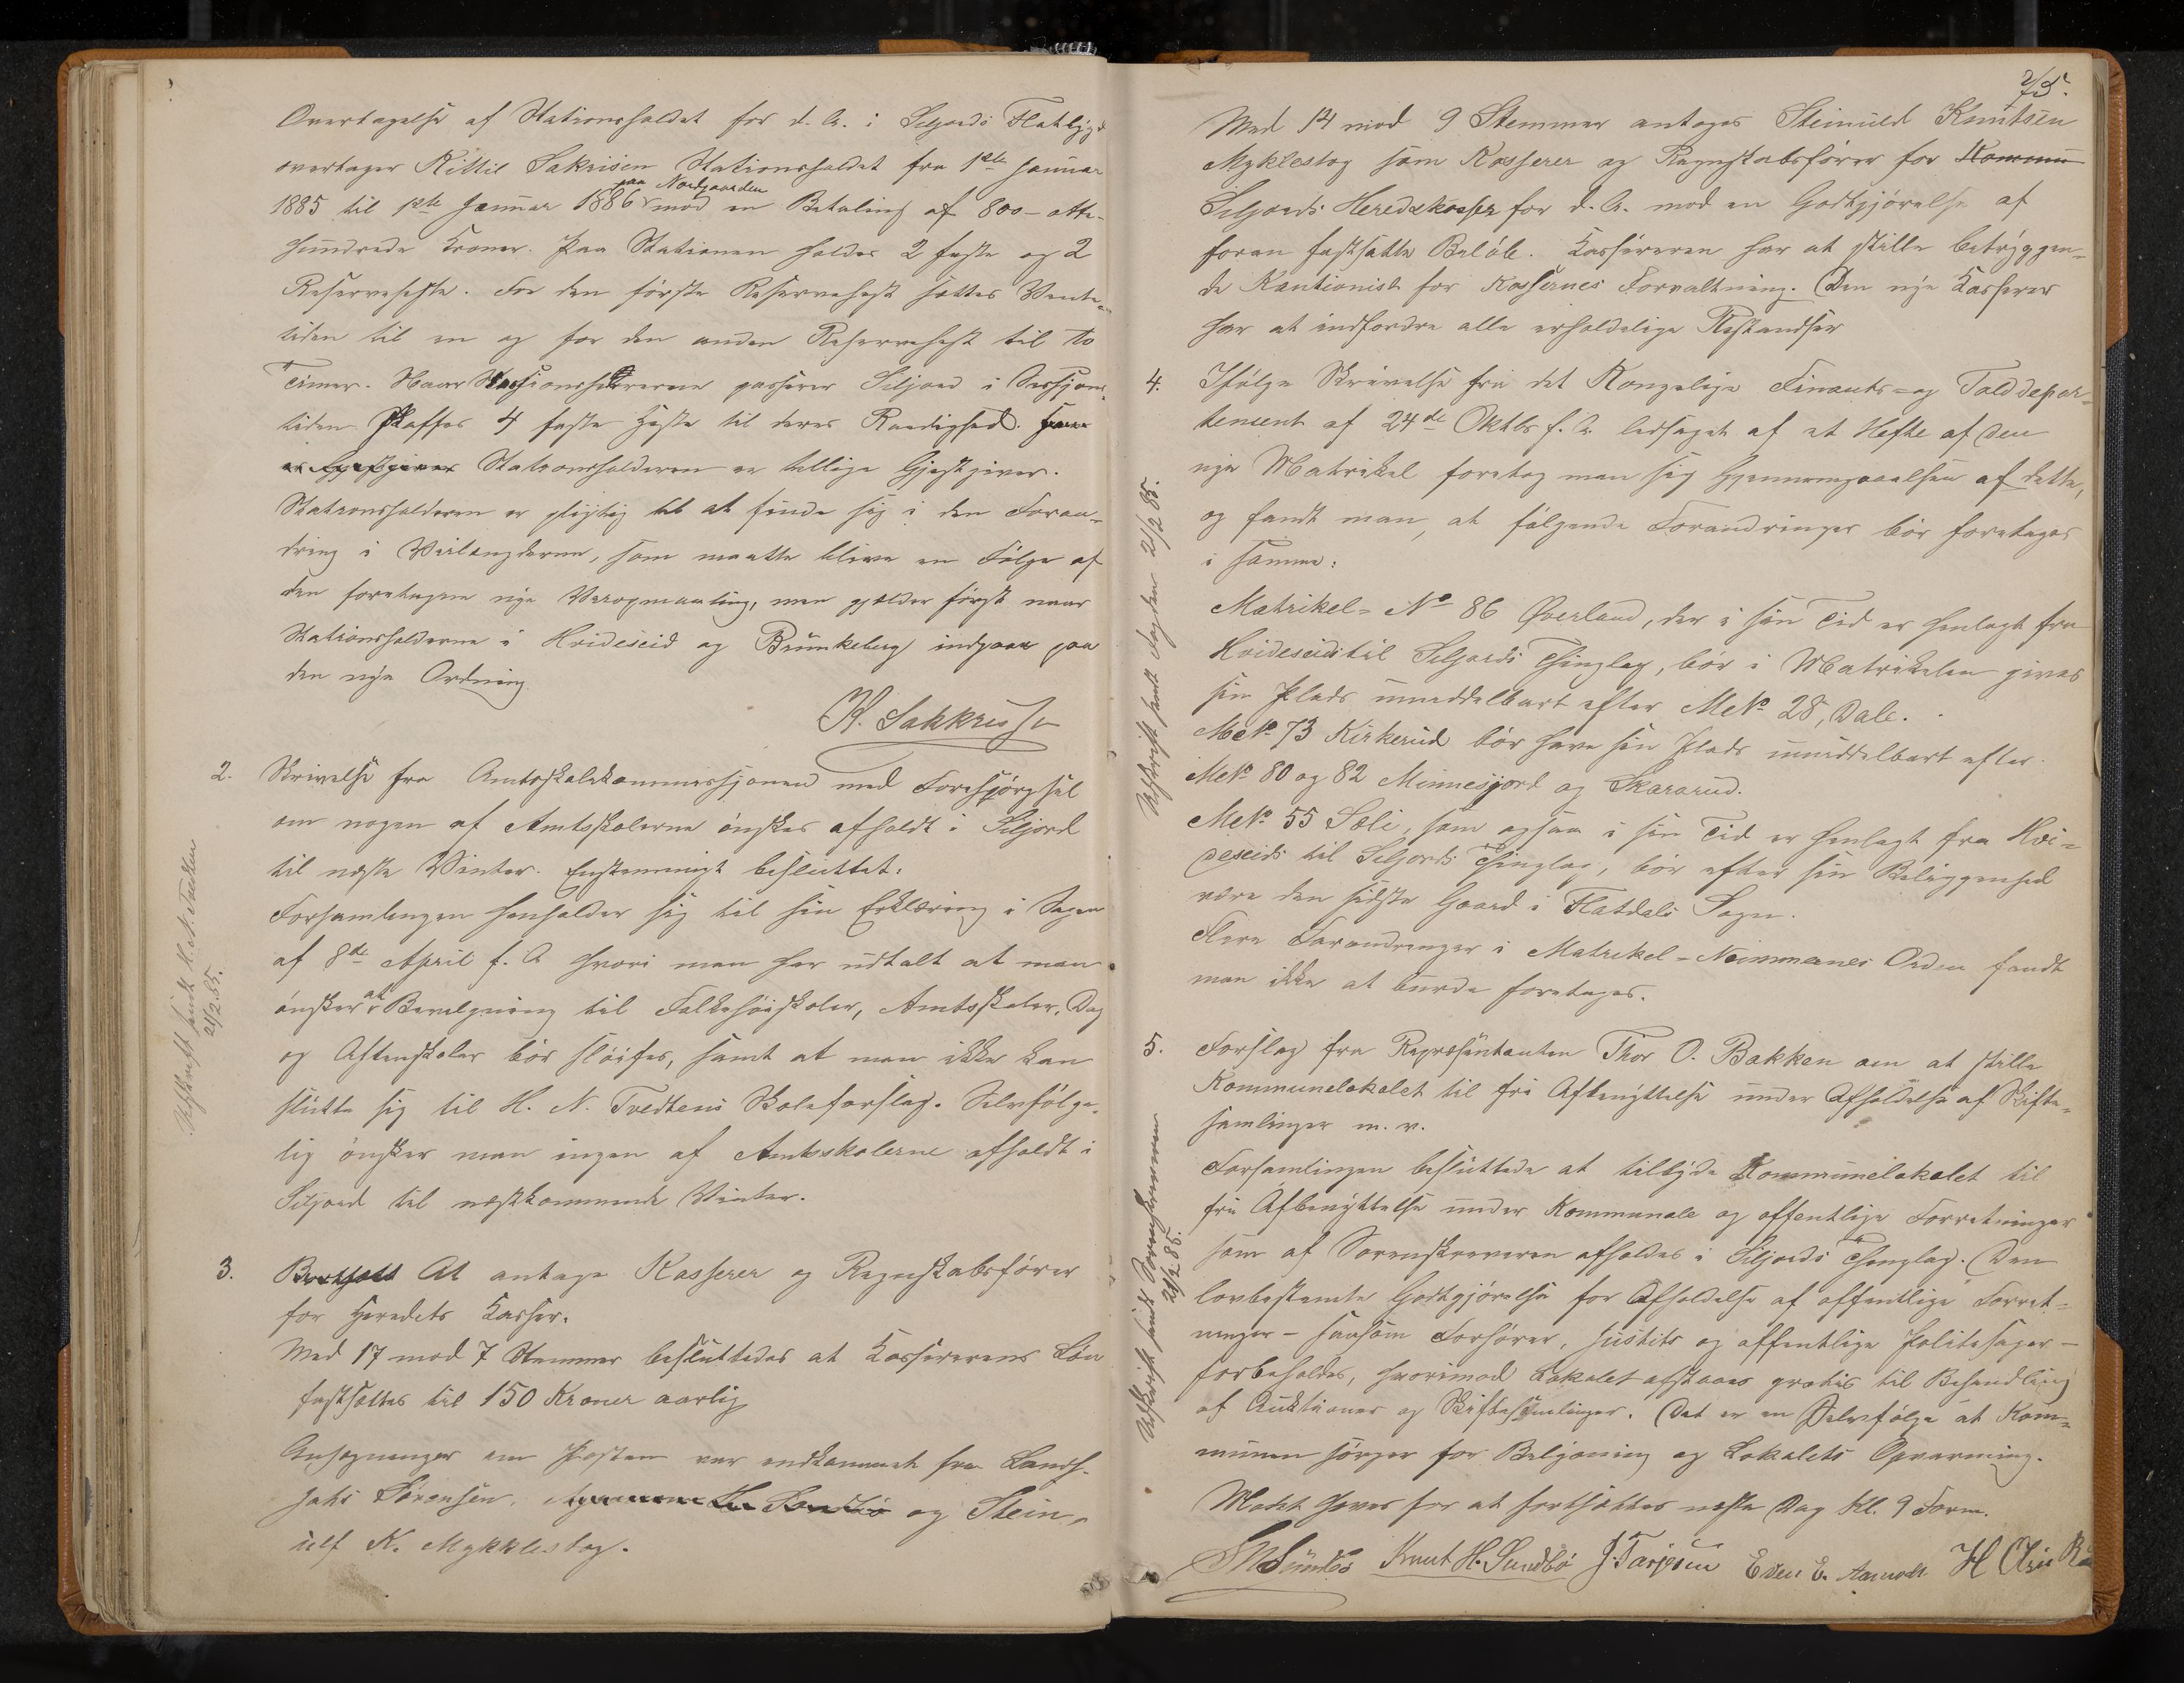 Overtagelse af Stationsholdet for d. A. i Seljords Flatbygd
overtager Kittil Sakrisen Stationsholdet fra 1ste Januar
paa Nordgaarden
1885 til 1ste Januar 1886 mod en Betaling af 800 - otte-
hundrede Kroner. Paa Stationen holdes 2 faste og 2
Reserveheste. For den første Reservehest sættes Vente-
tiden til en og for den anden Reservehest til to
Timer. Naar passerer Siljord i Sessjons-
tiden skaffes 4 faste Heste til deres Raadighed.
er Gjæstgiver Stationsholderen er tillige Gjæstgiver.
Stationsholderen er pligtig til at finde sig i den Foran-
dring i Veilængderne, som maatte blive en Følge af
den foretagne nye Veiopmaaling, men gjælder først naar
Stationsholderne i Hvideseid og Brunkeberg indgaar paa
den nye Ordning.
K. Sakkrisse
2. Skrivelse fra Amtsskolekommissjonen med Forespørgsel
om nogen af Amtsskolerne ønskes afholdt i Siljord
til næste Vinter. Enstemmigt besluttet:
Forsamlingen henholder sig til sin Erklæring i Sagen
af 8de April f. A. hvori man har udtalt at man
ønsker at Bevilgning til Folkehøiskoler, Amtsskoler, Dag
og Aftenskoler bør sløifes, samt at man ikke kan
slutte sig til H. N. Tvedtens Skoleforslag. Selvfølge-
lig ønsker man ingen af Amtsskolerne afholdt i
Siljord til nestkommende Vinter.
Afskrift sendt H. N. Tvedten
21/2 85.
3. At antage Kasserer og Regnskabsfører
for Heredets Kasser.
Med 17 mod 7 Stemmer besluttedes at Kassererens Løn
fastsættes til 150 Kroner aarlig
Ansøgninger om Posten var indkommet fra Landh.
Jahs Sørensen, og Stein-
ulf K. Mykklestog.
75.
Med 14 mod 9 Stemmer antoges Steinuld Knutsen
Myklestog som Kasserer og Regnskabsfører for Kommu
Seljords Heredskasser for d. A. mod en Godtgjørelse af
foran fastsatte Beløb. Kassereren har at stille betryggen-
de Kautionist for Kassernes Forvaltning. Den nye Kasserer
har at indfordre alle erholdelige Restandser
4. Ifølge Skrivelse fra det Kongelige Finants- og Tolddepar-
tement af 24de Oktbr f. A. ledsaget af et Hefte af den
nye Matrikel foretog man sig Gjennemgaaelsen af dette,
og fandt man, at følgende Forandringer bør foretages
i samme:
Matrikel-No 86 Øverland, der i sin Tid er henlagt fra
Hvideseid til Seljords Thinglag, bør i Matrikelen gives
sin Plads umiddelbart efter M No 28, Dale.
M No 73 Kirkerud bør have sin Plads umiddelbart efter
M No 80 og 82 Minnesjord og Skararud.
M No 55 Soli, som ogsaa i sin Tid er henlagt fra Hvi-
deseid til Seljords Thinglag, bør efter sin Beliggenhed
være den sidste Gaard i Flatdals Sogn.
Flere Forandringer i Matrikel-Nummernes Orden fandt
man ikke at burde foretages.
Afskrift sendt Fogden 21/2 85.
5. Forslag fra Repræsentanten Thor O. Bakken om at stille
Kommunelokalet til fri Afbenyttelse under Afholdelse af Skifte-
samlinger m. v.
Forsamlingen besluttede at tilbyde Kommunelokalet til
fri Afbenyttelse under Kommunale og offentlige Forretninger
som af Sorenskriveren afholdes i Siljords Thinglag. Den
lovbestemte Godtgjørelse for Afholdelse af offentlige Forret-
ninger - saasom Forhører, Justits og offentlige Politisager -
forbeholdes, hvorimod Lokalet afstaaes gratis til Behandling
af Auktioner og Skiftesamlinger. Det er en Selvfølge at Kom-
munen sørger for Belysning og Lokalets Opvarming.
Afskrift sendt Sorenskriveren
21/2 85.
Mødet hæves for at fortsættes næste Dag Kl. 9 Form.
Knut H. Sundbø J. Tarjesen Even E. Aamodt